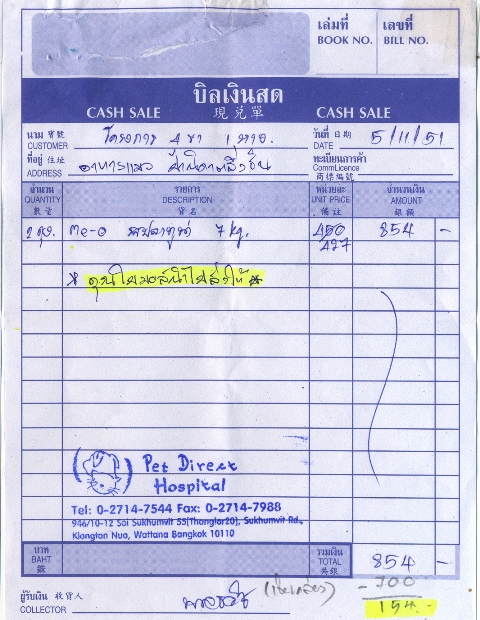 เล่มที่ เลขที่
BOOK NO. BILL NO.
บิลเงินสด
CASH SALE 現兌單 CASH SALE
นาม 寶號 โครงการ 4 ขา วันที่ 日期
CUSTOMER DATE 5/11/51
ที่อยู่ 住址 อาหารแมว ทะเบียนการค้า
ADDRESS CommLicence
商標編號
จำนวน รายการ หน่วยละ จำนวนเงิน
QUANTITY DESCRIPTION UNIT PRICE AMOUNT
數量 貨名 備註 銀額
2 ถุง. Me-O รสปลาทูน่า 7 kg. 450 854 -
427
* คุณใยมอสนำไปส่งให้ *
Pet Direct
Hospital
Tel: 0-2714-7544 Fax: 0-2714-7988
946/10-12 Soi Sukhumvit 55(Thonglor20), Sukhumvit Rd.,
Klongtan Nua, Wattana Bangkok 10110
บาท รวมเงิน
BAHT TOTAL 854 -
銖 共銀
- 700
ผู้รับเงิน 收貨人 154.-
COLLECTOR